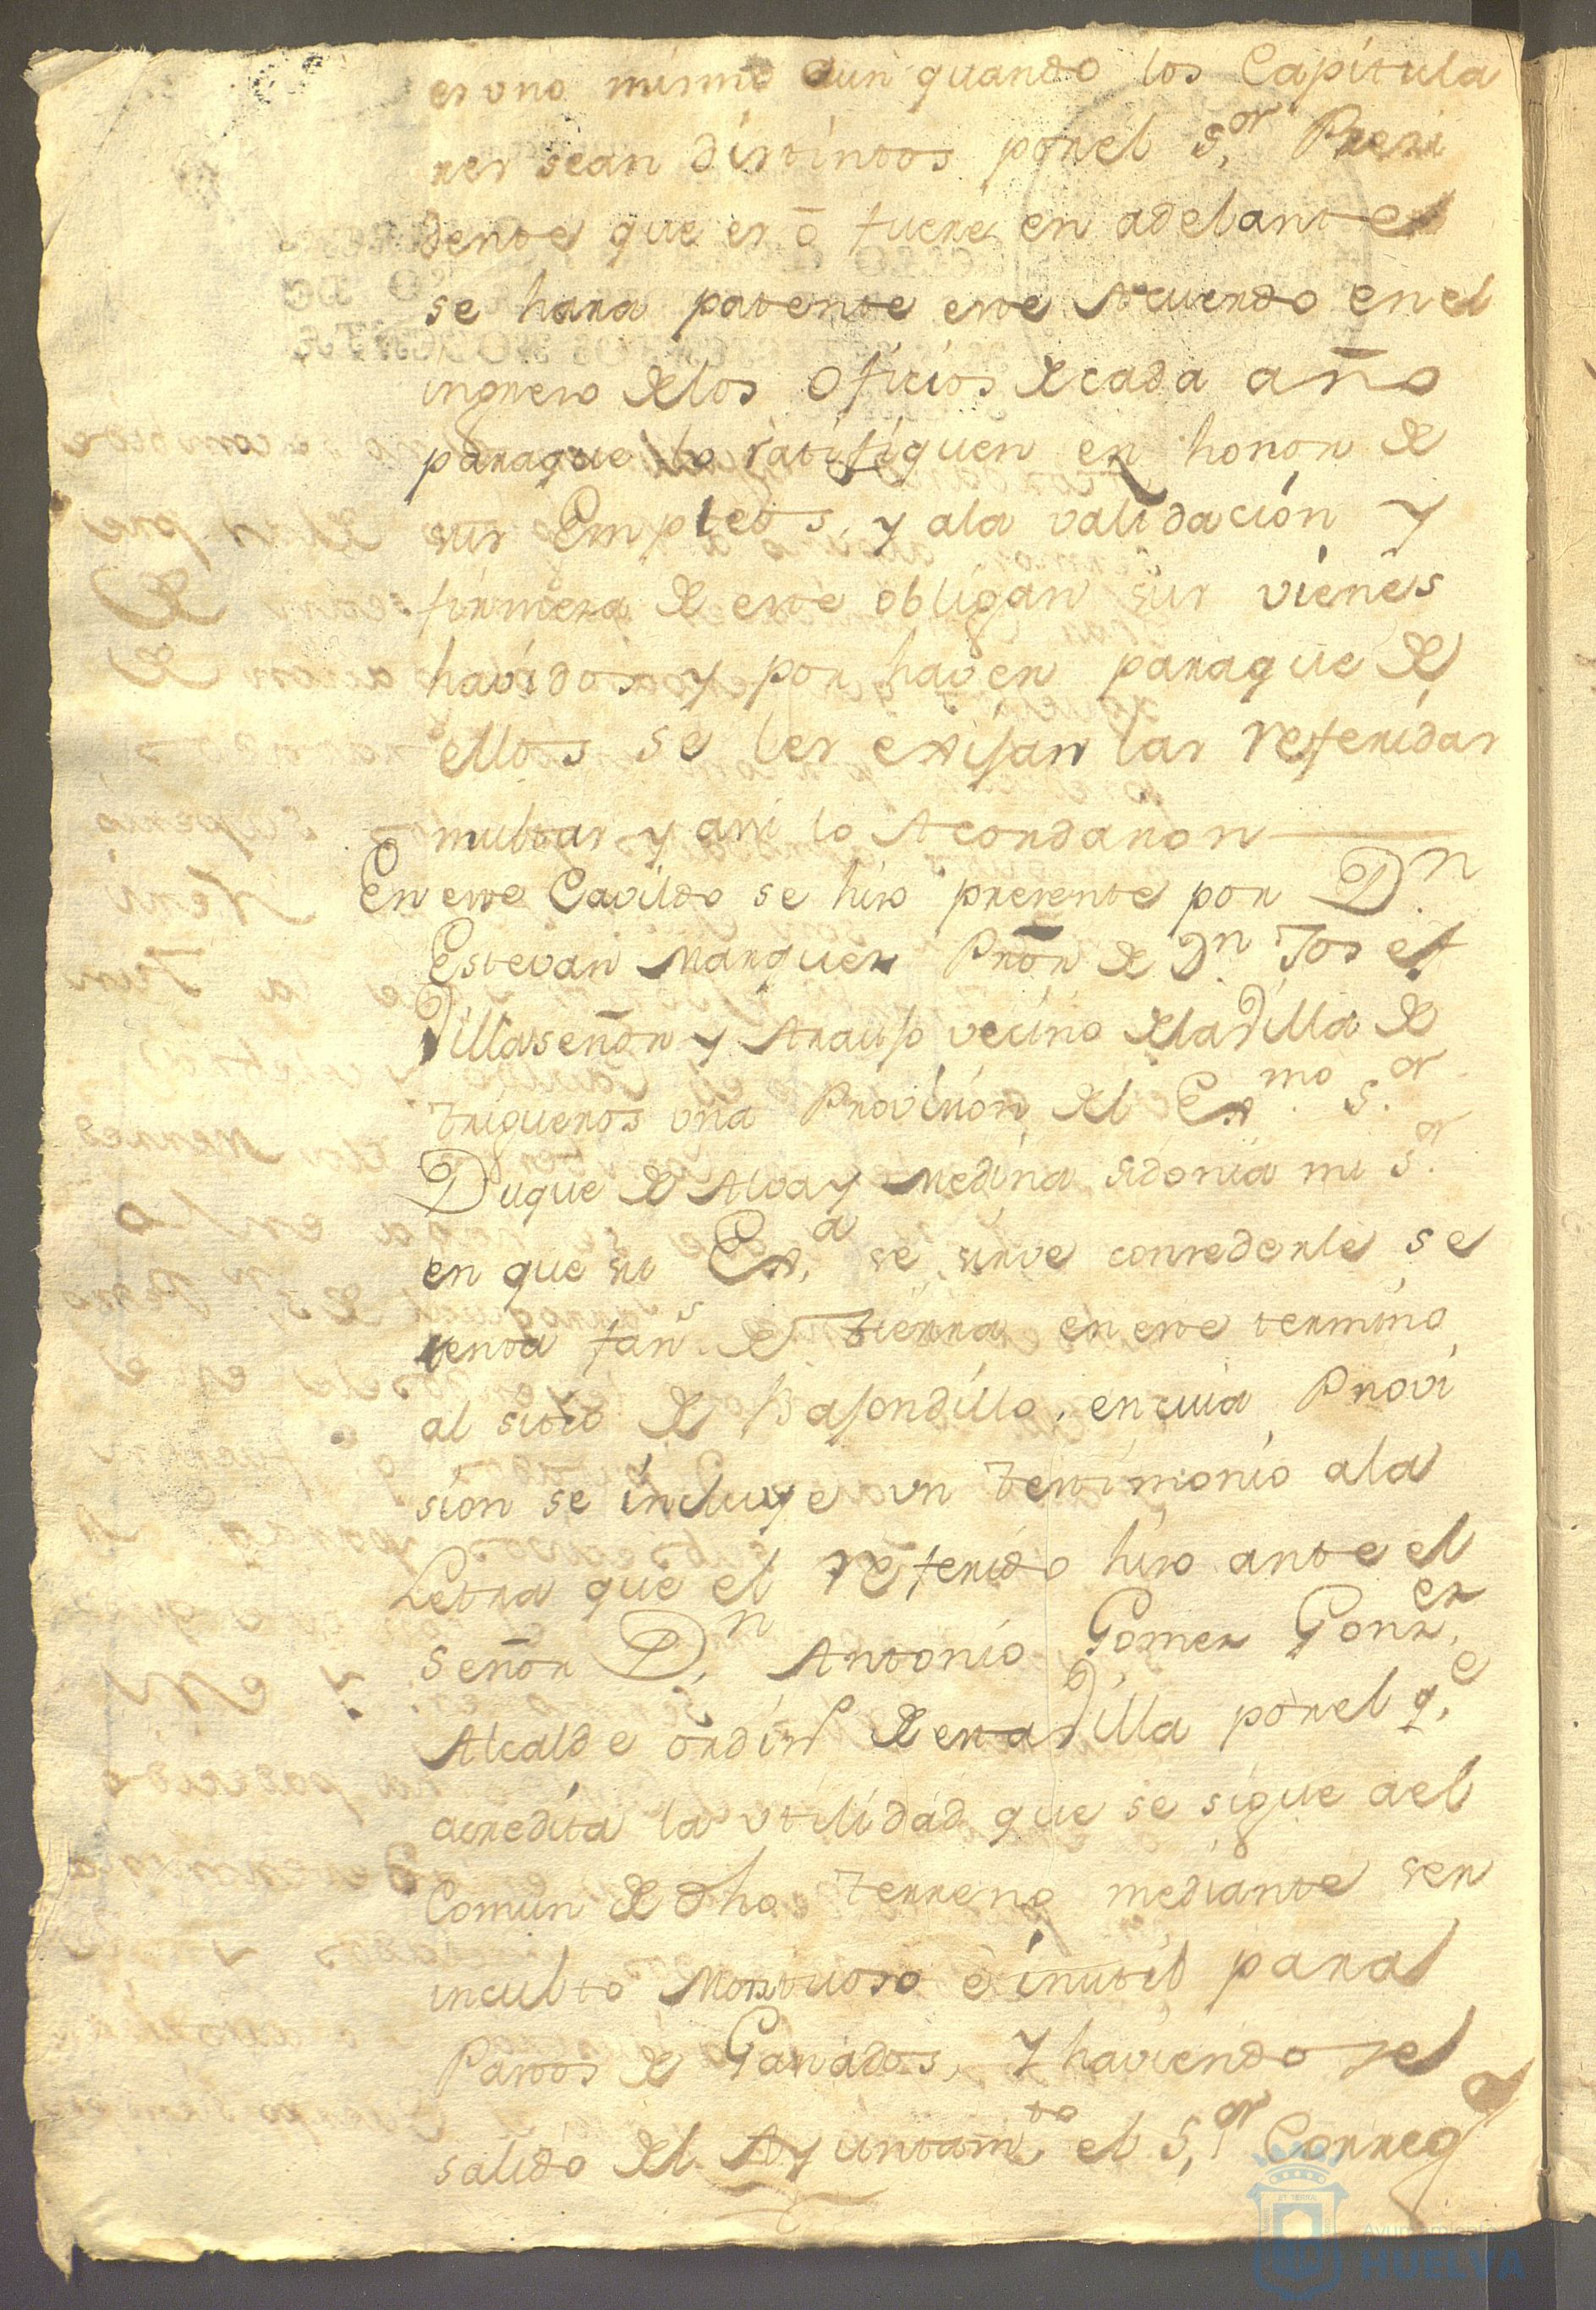 es uno mismo aun quando los Capitula
res sean distintos por el S.or Presi
dente que es ō fuere en adelante
se hara patente este Acuerdo en el
ingreso de los Oficios de cada año
para que lo ratifiquen en honor de
sus Empleos, y a la validación y
firmeza de este obligan sus vienes
havidos y por haver para que de
ellos se les exijan las referidas
multas y assi lo Acordaron
En este Cavildo se hizo presente por D.n
Estevan Marquez Prōr de D.n Josef
Villaseñor y Araujo vecino de la Villa de
trigueros una Provision del Ex.mo S.or
Duque de Alva y Medina Sidonia mi S.or
en que su Ex.a se sirve concederle se
tenta fan.s de tierra en este termino
al sitio de Bajondillo, en cuia Provi
sion se incluye un testimonio a la
Letra que el referido hizo ante el
Señor D.n Antonio Gomez Gonz.ez
Alcalde ordin.o de esta Villa por el q.e
acredita la utilidad que se sigue a el
Comun de dho terreno mediante ser
inculto Montuoso é inutil para
Pastos de Ganados, y haviendose
salido del Ayuntam.to el S.or Correg.or
Ayuntamiento
HUELVA